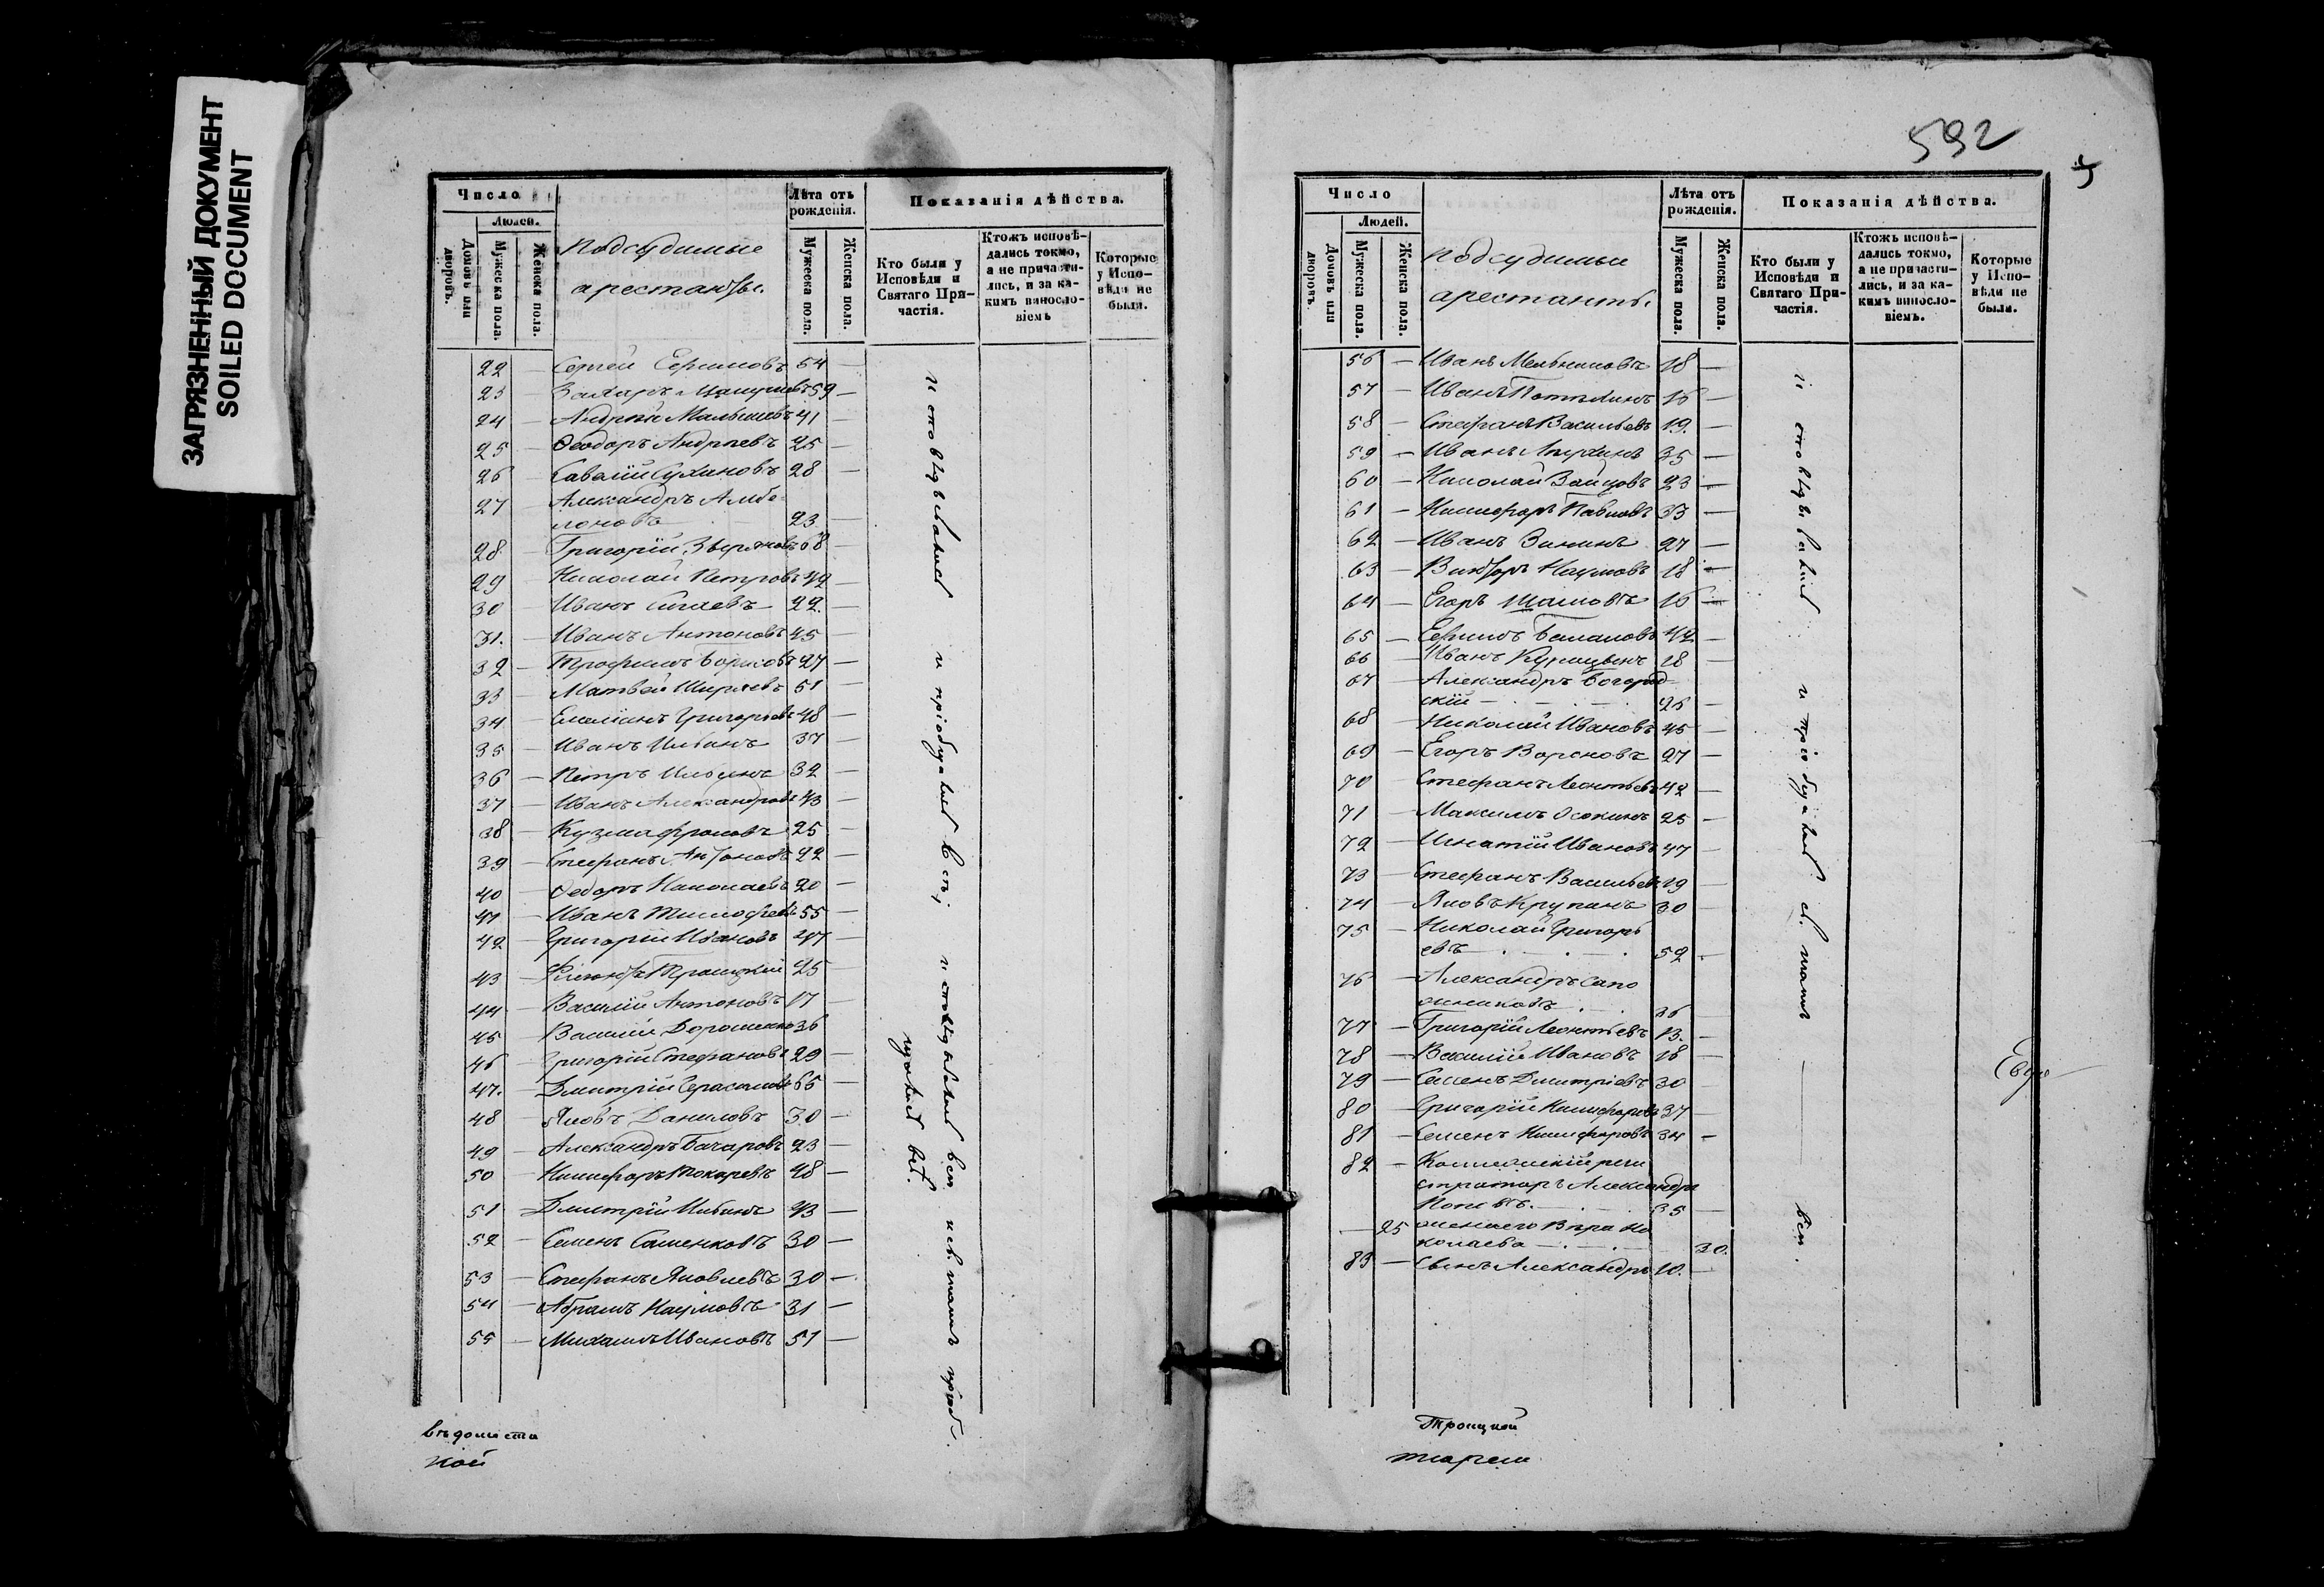 ЗАГРЯЗНЕННЫЙ ДОКУМЕНТ
SOILED DOCUMENT
Число
Людей.
Домовъ или дворовъ.
Мужеска пола.
Женска пола.
Подсудимые
арестанты.
Лѣта отъ рожденія.
Мужеска пола.
Женска пола.
Показанія дѣйства.
Кто были у Исповѣди и Святаго Причастія.
Ктожъ исповѣдались токмо, а не причастились, и за какимъ винословіемъ
Которые у Исповѣди не были.
22 — Сергей Ефимовъ 54 —
23 — Захаръ 59 —
24 — Андрей Малышевъ 41 —
25 — Ѳеодоръ Андреевъ 25 —
26 — Савелій Сухановъ 28 —
27 — Александръ
23 —
28 — Григорій Звѣревъ 68 —
29 — Николай Петровъ 42 —
30 — Иванъ Сигаевъ 22 —
31. — Иванъ Антоновъ 45 —
32 — Трофимъ Борисовъ 27 —
33 — Матвей Ширяевъ 51 —
34 — Емеліанъ Григорьевъ 48 —
35 — Иванъ Ильинъ 37 —
36 — Петръ Ильинъ 32 —
37 — Иванъ Александровъ 43 —
38 — Кузма Фроловъ 25 —
39 — Стефанъ Антоновъ 22 —
40 — Ѳедоръ Николаевъ 20 —
41 — Иванъ Тимофеевъ 55 —
42 — Григорій Ивановъ 47 —
43 — Троицкій 25 —
44 — Василій Антоновъ 17 —
45 — Василій Дорошенко 36
46 — Григорій Стефановъ 29 —
47. — Дмитрій Герасимовъ 65 —
48 — Яковъ Даниловъ 30 —
49 — Александръ Бачаровъ 23 —
50 — Никифоръ Токаревъ 28 —
51 — Дмитрій Ильинъ 43 —
52 — Семенъ Саменковъ 30 —
53 — Стефанъ Яковлевъ 30 —
54 — Абрамъ Наумовъ 31 —
55 — Михаилъ Ивановъ 51 —
исповѣдывались и пріобщались
вѣдомости
кой
592
Число
Людей.
Домовъ или дворовъ.
Мужеска пола.
Женска пола.
Подсудимые
арестанты.
Лѣта отъ рожденія.
Мужеска пола.
Женска пола.
Показанія дѣйства.
Кто были у Исповѣди и Святаго Причастія.
Ктожъ исповѣдались токмо, а не причастились, и за какимъ винословіемъ.
Которые у Исповѣди не были.
56 — Иванъ Мельниковъ 18 —
57 — Иванъ 16 —
58 — Стефанъ Васильевъ 19. —
59 — Иванъ 35 —
60 — Николай Зайцовъ 23 —
61 — Никифоръ Павловъ 33 —
62 — Иванъ Зининъ 27 —
63 — Викторъ Наумовъ 18 —
64 — Егоръ 16 —
65 — Ефимъ Балаловъ 42 —
66 — Иванъ Курицынъ 18 —
67 — Александръ Богород
скій — 26 —
68 — Николай Ивановъ 45 —
69 — Егоръ Вороновъ 27 —
70 — Стефанъ Леонтьевъ 42 —
71 — Максимъ Осокинъ 25 —
72 — Игнатій Ивановъ 47 —
73 — Стефанъ Васильевъ 19 —
74 — Яковъ Крупинъ 30 —
75 — Николай Григорь
евъ 52 —
76 — Александръ Сапо
жниковъ 36
77 — Григорій Леонтьевъ 13. —
78 — Василій Ивановъ 18 —
79 — Семенъ Дмитріевъ 30
80 — Григорій Никифоровъ 37 —
81 — Семенъ Никифоровъ 34 —
82 — Коллежскій реги
страторъ Александръ
Поповъ. 35 —
— 25 жена его Вѣра Ни
колаева — 30.
83 — Сынъ Александръ 10. —
исповѣдывались и пріобщались св. таинъ — — всѣ.
Троицкой